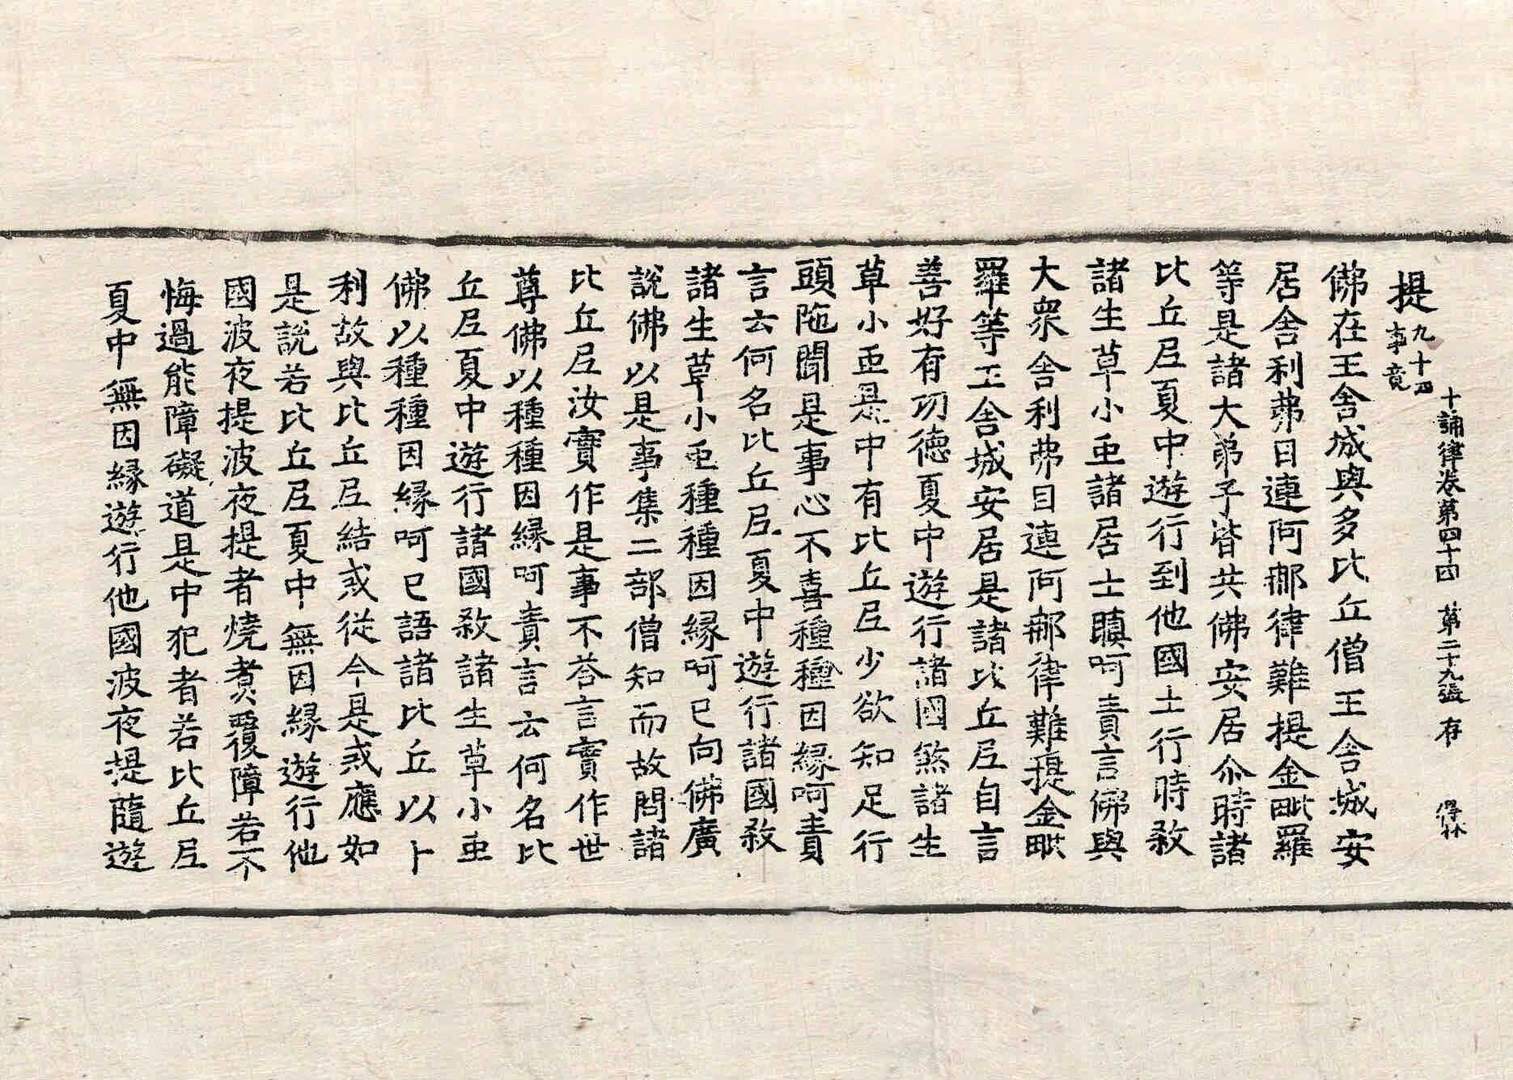 十誦律卷第四十四 第二十九張 存 得林
提九十四事竟
佛在王舍城與多比丘僧王舍城安
居舍利弗目連阿那律難提金毗羅
等是諸大弟子皆共佛安居尒時諸
比丘尼夏中遊行到他國土行時殺
諸生草小䖝諸居士瞋呵責言佛與
大衆舍利弗目連阿那律難提金毗
羅等王舍城安居是諸比丘尼自言
善好有功德夏中遊行諸國煞諸生
草小䖝是中有比丘尼少欲知足行
頭陁聞是事心不喜種種因緣呵責
言云何名比丘尼夏中遊行諸國殺
諸生草小䖝種種因緣呵已向佛廣
說佛以是事集二部僧知而故問諸
比丘尼汝實作是事不荅言實作世
尊佛以種種因緣呵責言云何名比
丘尼夏中遊行諸國殺諸生草小䖝
佛以種種因緣呵已語諸比丘以十
利故與比丘尼結戒從今是戒應如
是說若比丘尼夏中無因緣遊行他
國波夜提波夜提者燒煑覆障若不
悔過能障礙道是中犯者若比丘尼
夏中無因緣遊行他國波夜提隨遊